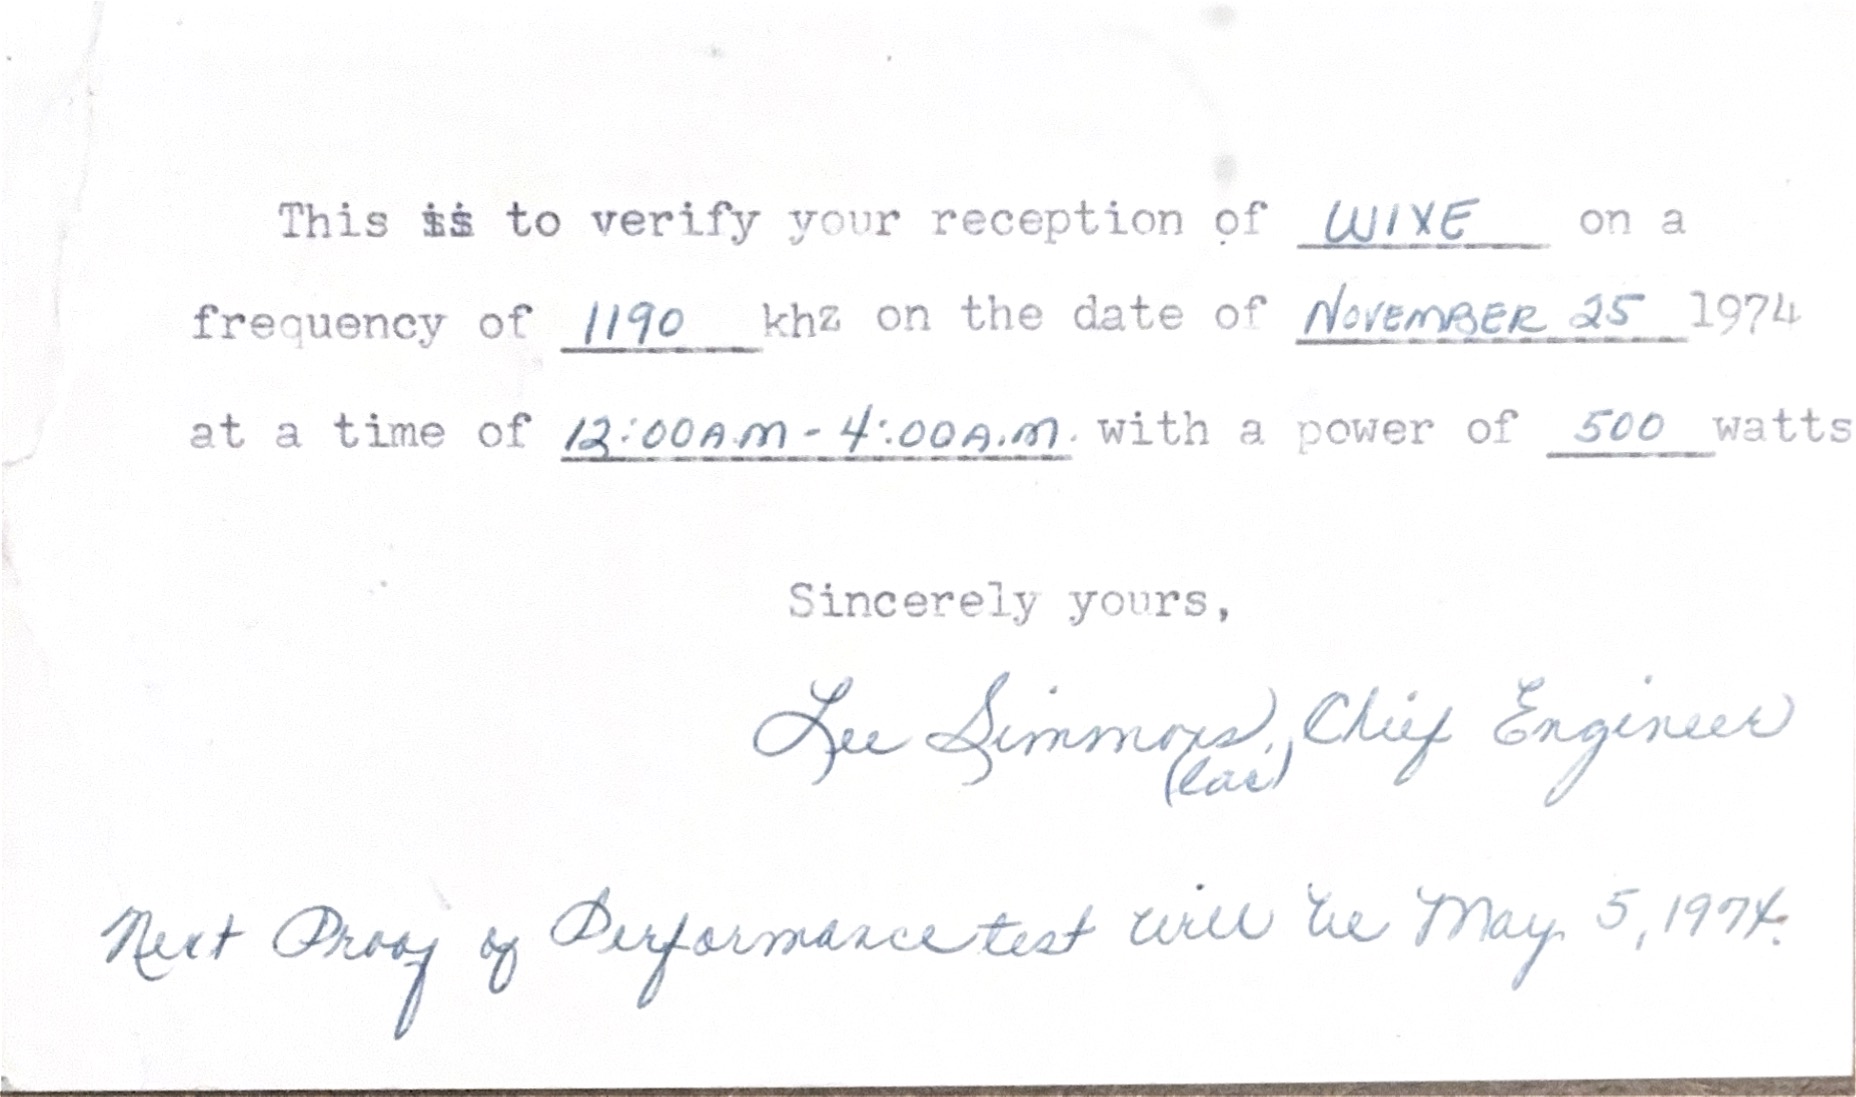 This is to verify your reception of WIXE on a
frequency of 1190 khz on the date of NOVEMBER 25 1974
at a time of 12:00A.M - 4:00A.M. with a power of 500 watts
Sincerely yours,
Lee Simmons, Chief Engineer
(las)
Next Proof of Performance test will be May 5, 1974.